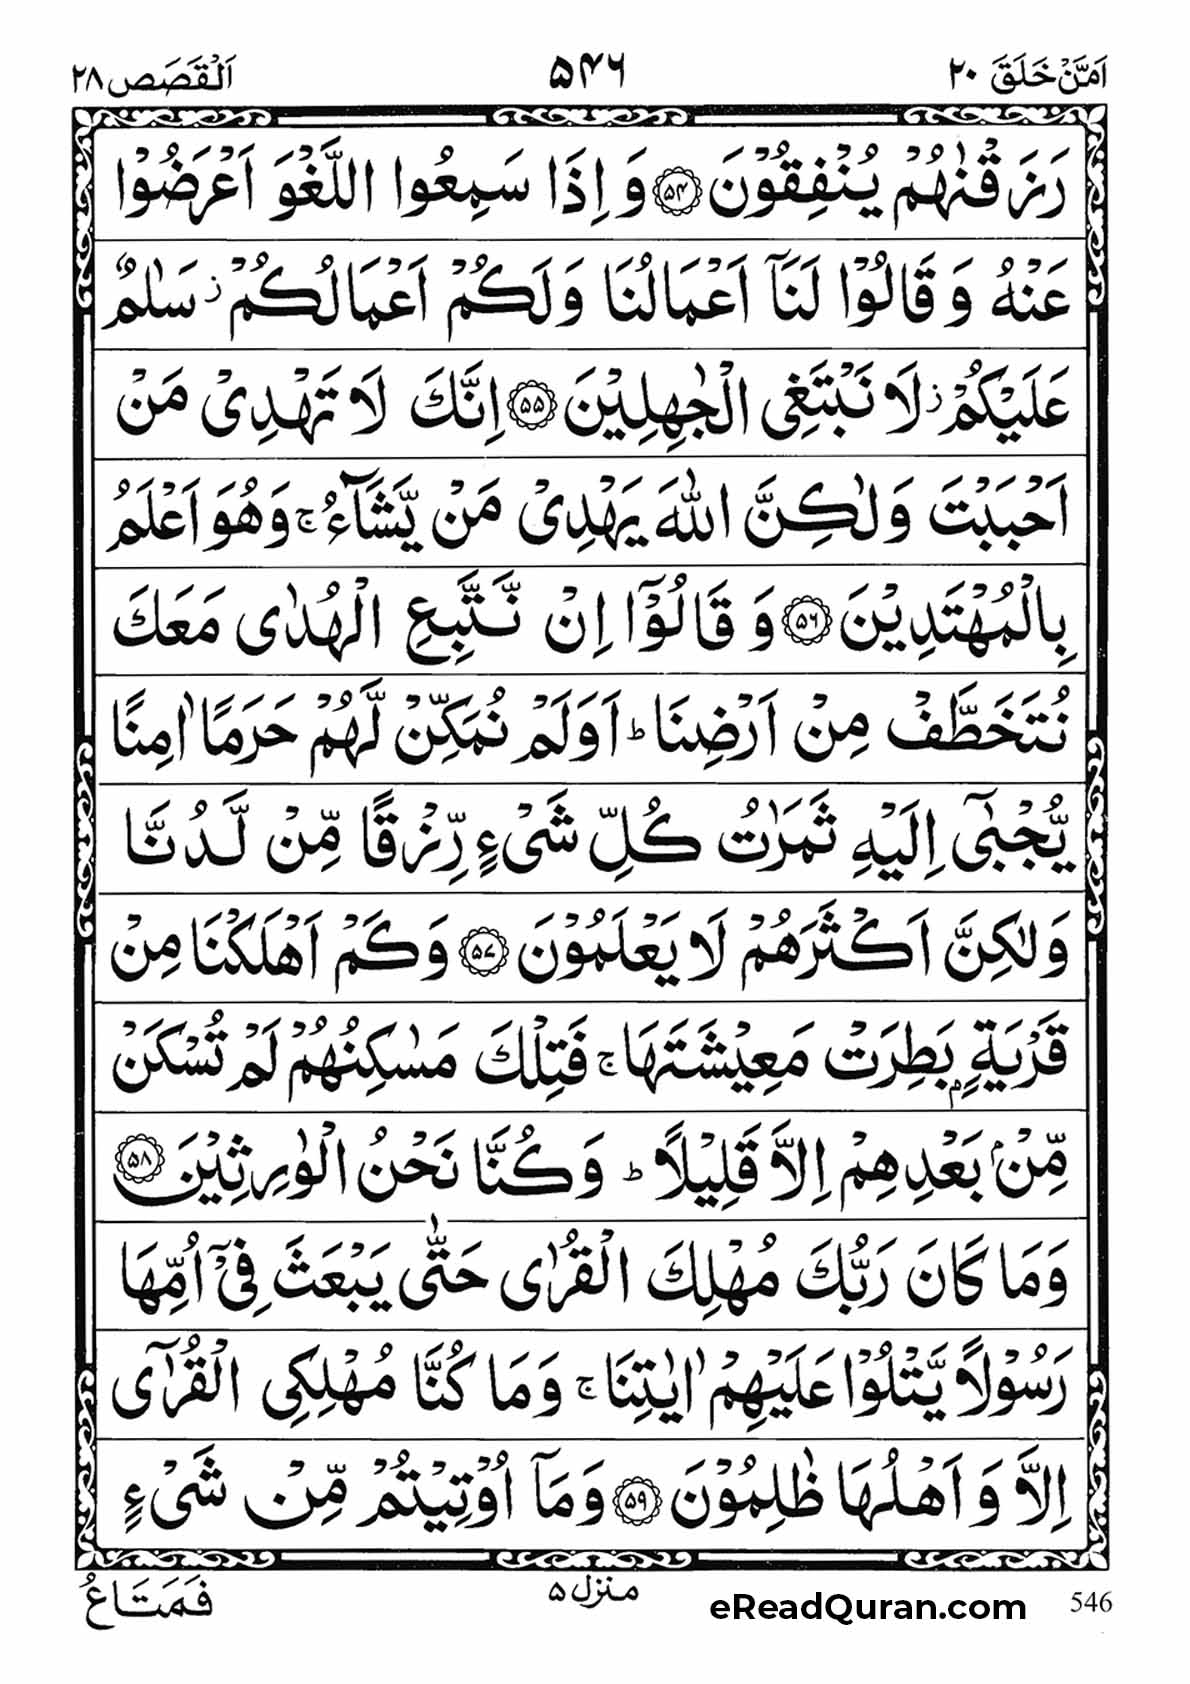 اَمَّنْ خَلَقَ ۲۰
۵۴۶
اَلْقَصَص ۲۸
رَزَقْنٰهُمْ يُنْفِقُوْنَ ۵۴ وَ اِذَا سَمِعُوا اللَّغْوَ اَعْرَضُوْا
عَنْهُ وَ قَالُوْا لَنَاۤ اَعْمَالُنَا وَلَكُمْ اَعْمَالُكُمْ ز سَلٰمٌ
عَلَيْكُمْ ز لَا نَبْتَغِى الْجٰهِلِيْنَ ۵۵ اِنَّكَ لَا تَهْدِىْ مَنْ
اَحْبَبْتَ وَلٰكِنَّ اللّٰهَ يَهْدِىْ مَنْ يَّشَآءُ ج وَهُوَ اَعْلَمُ
بِالْمُهْتَدِيْنَ ۵۶ وَ قَالُوْۤا اِنْ نَّتَّبِعِ الْهُدٰى مَعَكَ
نُتَخَطَّفْ مِنْ اَرْضِنَا ط اَوَلَمْ نُمَكِّنْ لَّهُمْ حَرَمًا اٰمِنًا
يُّجْبٰٓى اِلَيْهِ ثَمَرٰتُ كُلِّ شَىْءٍ رِّزْقًا مِّنْ لَّدُنَّا
وَلٰكِنَّ اَكْثَرَهُمْ لَا يَعْلَمُوْنَ ۵۷ وَكَمْ اَهْلَكْنَا مِنْ
قَرْيَةٍۭ بَطِرَتْ مَعِيْشَتَهَا ج فَتِلْكَ مَسٰكِنُهُمْ لَمْ تُسْكَنْ
مِّنْۢ بَعْدِهِمْ اِلَّا قَلِيْلًا ط وَكُنَّا نَحْنُ الْوٰرِثِيْنَ ۵۸
وَمَا كَانَ رَبُّكَ مُهْلِكَ الْقُرٰى حَتّٰى يَبْعَثَ فِىْۤ اُمِّهَا
رَسُوْلًا يَّتْلُوْا عَلَيْهِمْ اٰيٰتِنَا ج وَمَا كُنَّا مُهْلِكِى الْقُرٰٓى
اِلَّا وَ اَهْلُهَا ظٰلِمُوْنَ ۵۹ وَمَاۤ اُوْتِيْتُمْ مِّنْ شَىْءٍ
فَمَتَاعُ
منزل ۵
eReadQuran.com
546